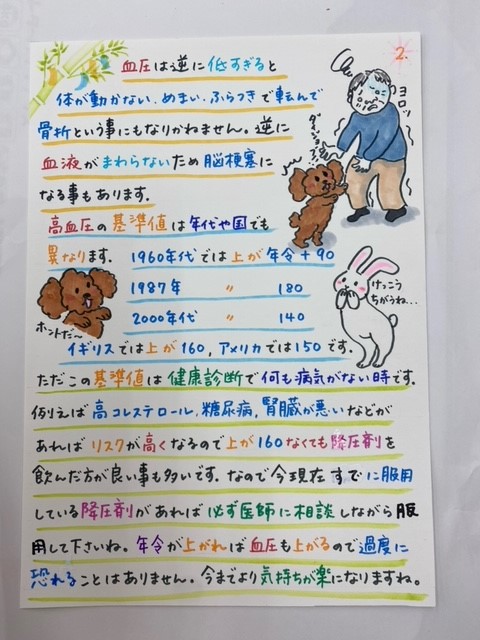 2.
血圧は逆に低すぎると
体が動かない、めまい、ふらつきで転んで
骨折という事にもなりかねません。逆に
血液がまわらないため脳梗塞に
なる事もあります。
ヨロッ
ダイジョーブ?
高血圧の基準値は年代や国でも
異なります。 1960年代では上が年令+90
1987年 〃 180
2000年代 〃 140
ホントだ〜
けっこうちがうね...
イギリスでは上が160,アメリカでは150です。
ただこの基準値は健康診断で何も病気がない時です。
例えば高コレステロール、糖尿病、腎臓が悪いなどが
あればリスクが高くなるので上が160なくても降圧剤を
飲んだ方が良い事も多いです。なので今現在すでに服用
している降圧剤があれば必ず医師に相談しながら服
用して下さいね。年令が上がれば血圧も上がるので過度に
恐れることはありません。今までより気持ちが楽になりますね。